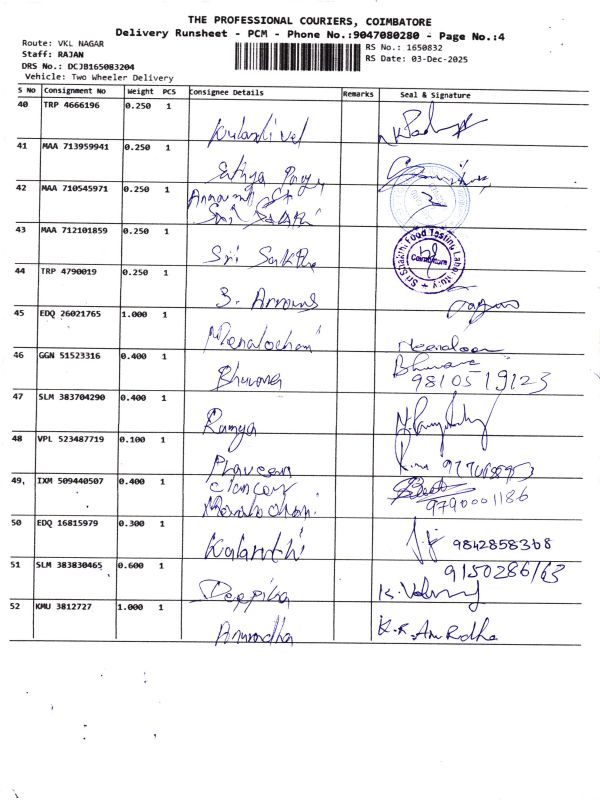 THE PROFESSIONAL COURIERS, COIMBATORE
Delivery Runsheet - PCM - Phone No.:9047080280 - Page No.:4
Route: VKL NAGAR
Staff: RAJAN
DRS No.: DCJB165083204
Vehicle: Two Wheeler Delivery
RS No.: 1650832
RS Date: 03-Dec-2025
S No Consignment No Weight PCS Consignee Details Remarks Seal & Signature
40 TRP 4666196 0.250 1
41 MAA 713959941 0.250 1 Sathya
42 MAA 710545971 0.250 1 Sri Sakthi
43 MAA 712101859 0.250 1 Sri Sakthi
Sri Shakthi Food Testing Laboratory
Coimbatore
44 TRP 4790019 0.250 1 3. Arrows
45 EDQ 26021765 1.000 1 Meenalochani
46 GGN 51523316 0.400 1 Bhuvana Bhuvana
9810519123
47 SLM 383704290 0.400 1 Ramya
48 VPL 523487719 0.100 1 Praveena
49, IXM 509440507 0.400 1
9790001186
50 EDQ 16815979 0.300 1 Kalaruthi 9842858368
51 SLM 383830465 0.600 1 Deepika 9150286163
52 KMU 3812727 1.000 1 Anuradha K.R. Anuradha